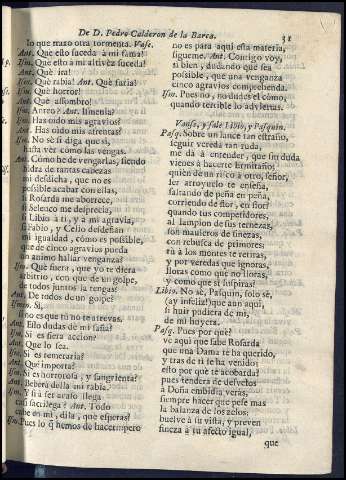 De D. Pedro Calderon de la Barca.
31
lo que mazo otra tormenta. Vase.
Ant. Què esto suceda à mi fama?
Ism. Què esto a mi altivèz suceda!
Ant. Què ira!
Ism. Què rabia! Ant. Què furia!
Ism. Què horror!
Ant. Què assombro!
Ism. Antèo? Ant. Ismenia?
Ant. Has oìdo mis agravios?
Ism. Has oìdo mis afrentas?
Ant. No sè si diga que si,
hasta vèr còmo las vengas.
Ant. Còmo he de vengarlas, siendo
hidra de tantas cabezas
mi desdicha, que no es
possible acabar con ellas,
si Rosarda me aborrece,
si Seleuco me desprecia,
si Libio à ti, y à mi agravia,
si Fabio, y Celio desdeñan
mi igualdad, còmo es possible,
que de cinco agravios pueda
un animo hallar venganza?
Ism. Què fuera, que yo te diera
arbitrio, con que de un golpe,
de todos juntos la tengas?
Ant. De todos de un golpe?
Ism. Si,
si no es que tù no te atrevas.
Ant. Esso dudas de mi saña?
Ism. Es fiera accion?
Ant. Que lo sea.
Ism. Si es temeraria?
Ant. Què importa?
Ism. Si es horrorosa, y sangrienta?
Ant. Beberà della mi rabia.
Ism. Y si à ser acaso llega
casi sacrilega? Ant. Todo
cabe en mi, dila, que esperas?
Ism. Pues lo q hemos de hacer, pero
no es para aqui esta materia,
sigueme. Ant. Contigo voy,
si bien, dudando que sea
possible, que una venganza
cinco agravios comprehenda.
Ism. Pues no, no dudes el còmo,
quando terrible lo adviertas.
Vanse, y sale Libio, y Pasquin.
Pasq. Sobre un lance tan estraño,
seguir vereda tan ruda,
me dà à entender, que sin duda
vienes à hacerte Ermitaño;
quièn de un rico à otro, señor,
ser arroyuelo te enseña,
saltando de peña en peña,
corriendo de flor, en flor?
quando tus competidores,
al lampion de sus ternezas,
son manteros de finezas,
con rebusca de primores;
tù à los montes te retiras,
y por veredas que ignoras,
lloras como que no lloras,
y como que si suspiras?
Libio. No sè, Pasquin, solo sè,
(ay infeliz!) que aun aqui,
si huir pudiera de mi,
de mi huyera.
Pasq. Pues por què?
vè aqui que sabe Rosarda
que una Dama te ha querido,
y tras de ti te ha venido:
esto por què te acobarda?
pues tendera de desvelos
à Doña embidia veràs,
siempre hacer que pese mas
la balanza de los zelos:
buelve à su vista, y preven
fineza à tu afecto igual,
que